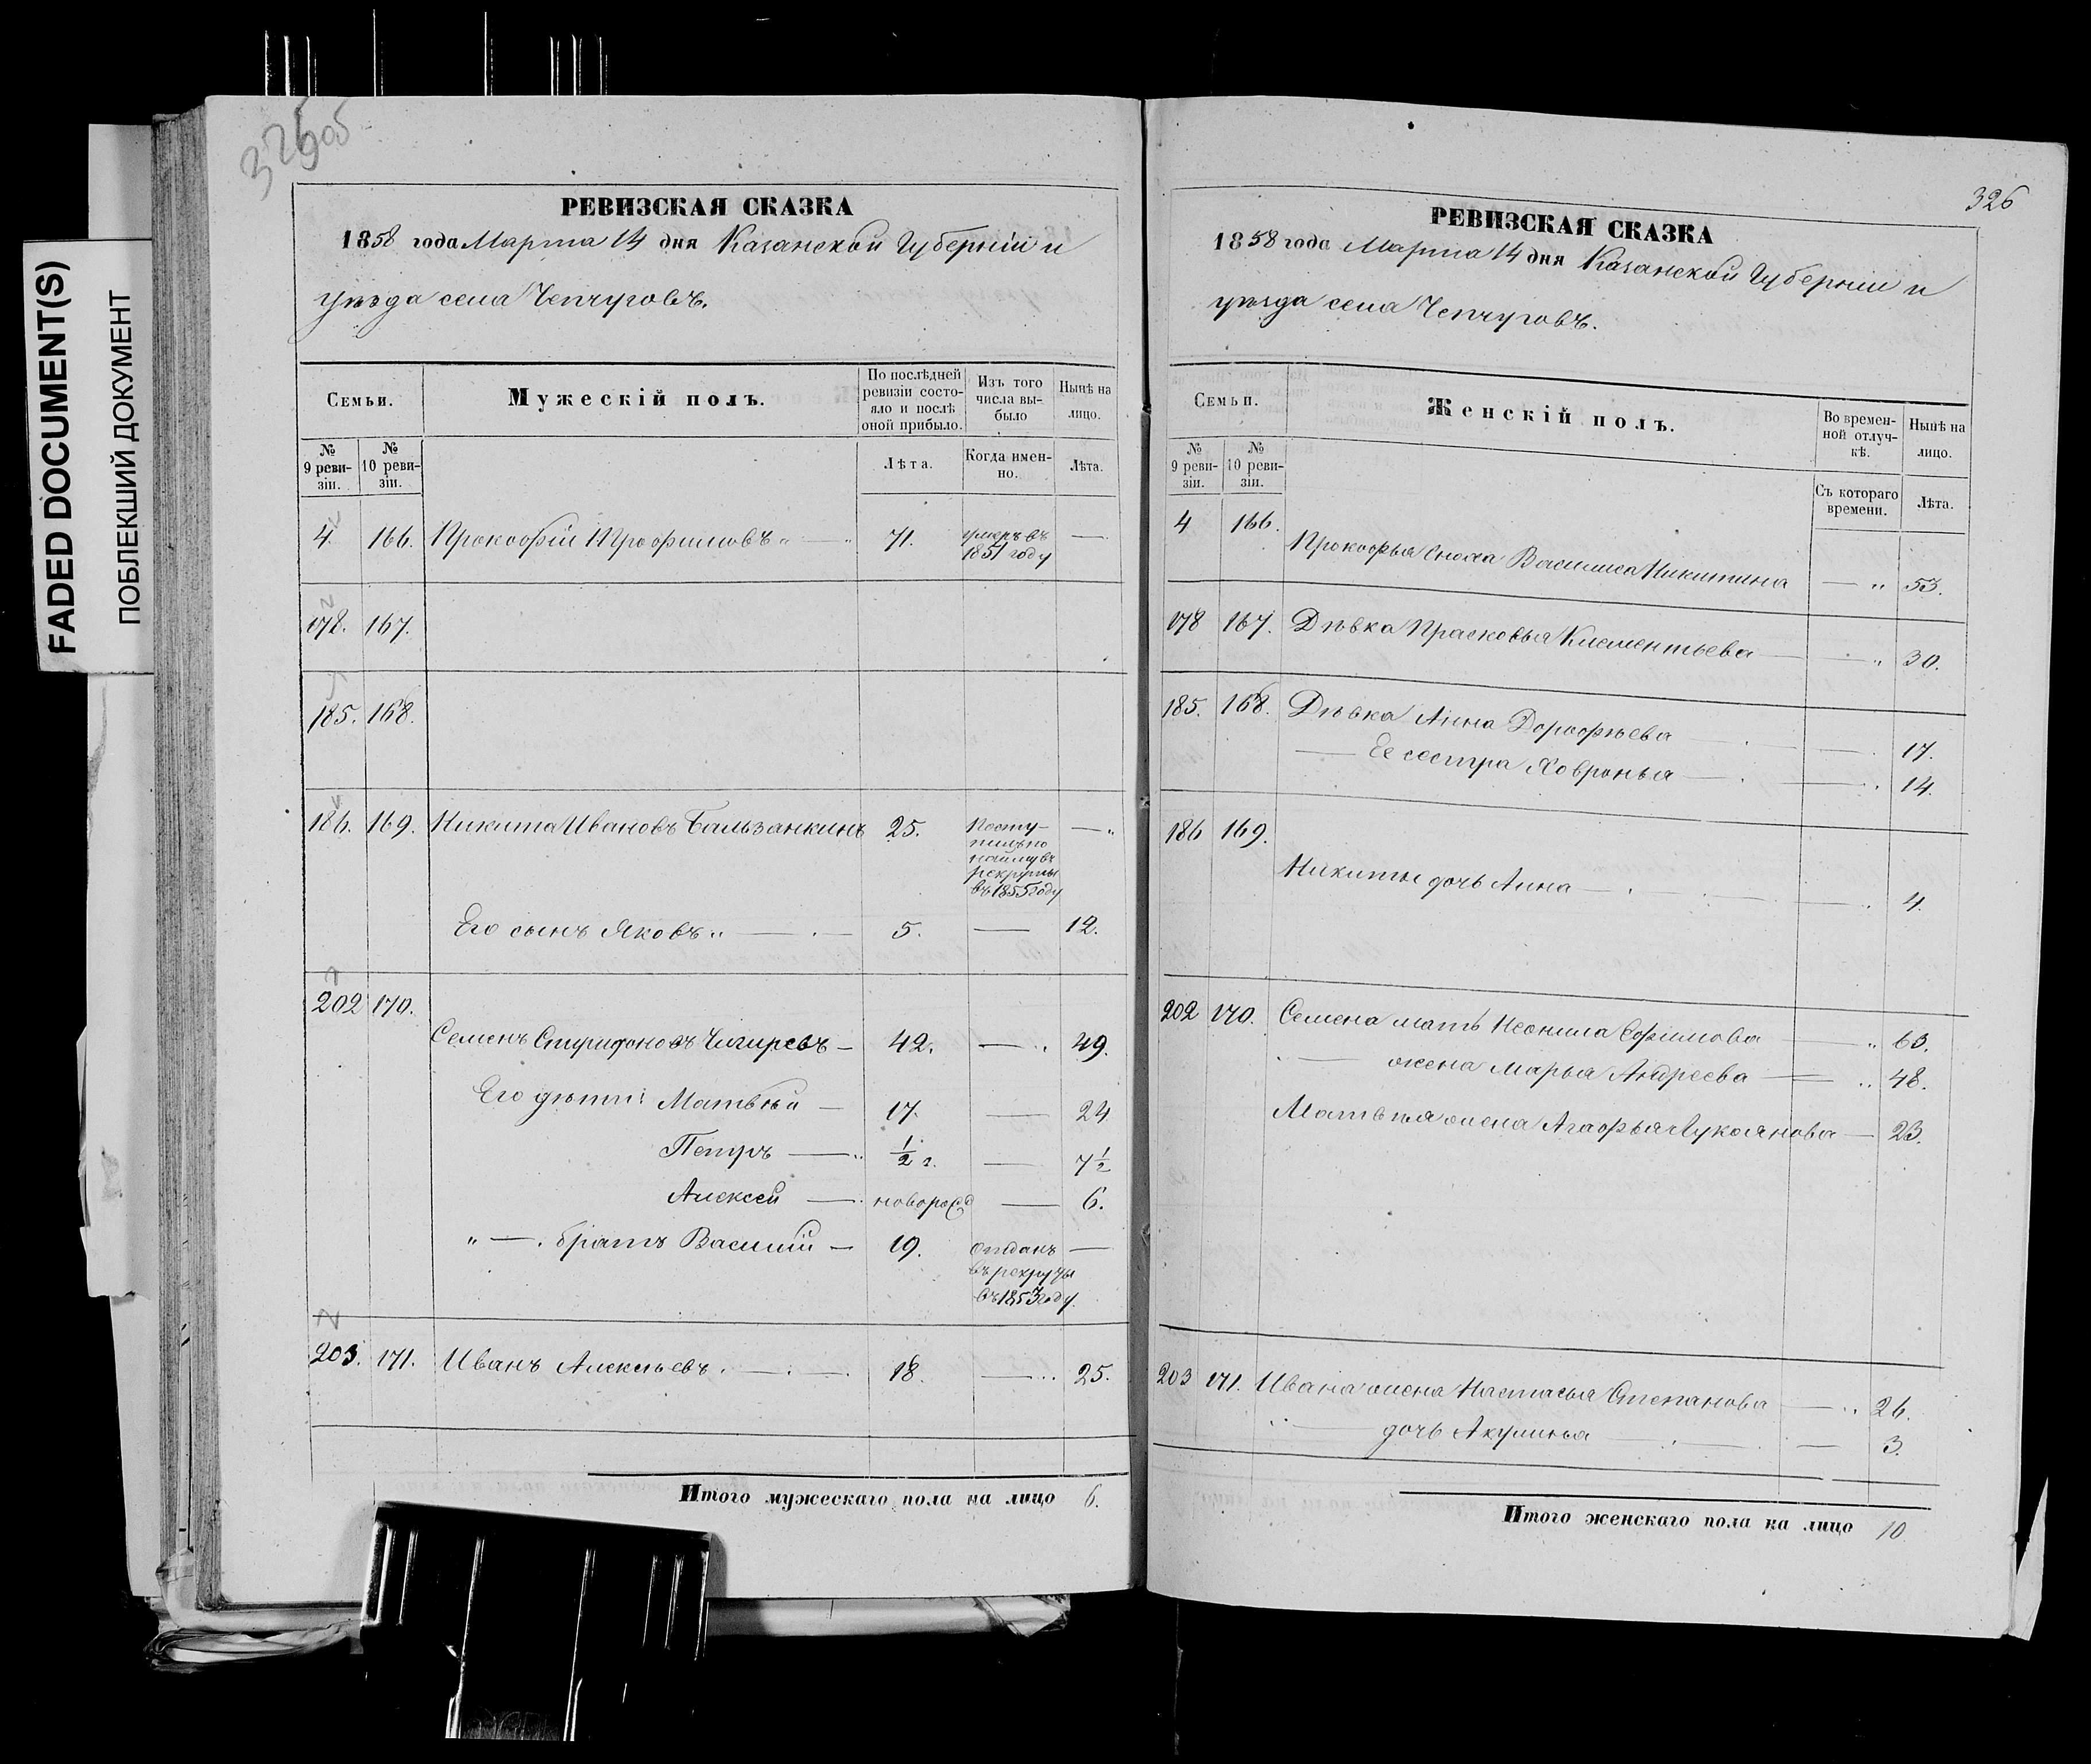 FADED DOCUMENT(S)
ПОБЛЕКШИЙ ДОКУМЕНТ
РЕВИЗСКАЯ СКАЗКА
1858 года Марта 14 дня Казанской Губерніи и
уѣзда села Чепчуговъ.
Семьи.
Мужескій полъ.
По послѣдней
ревизіи состо-
яло и послѣ
оной прибыло.
Изъ того
числа вы-
было
Нынѣ на
лицо.
№
9 реви-
зіи.
№
10 реви-
зіи.
Лѣта.
Когда имен-
но.
Лѣта.
4. 166. Прокофій Трофимовъ 71. умеръ въ —
1851 году
178. 167.
185. 168.
186. 169. Никита Ивановъ Бальзанкинъ 25. Посту- —
пилъ по
найму въ
рекруты
въ 1855 году
Его сынъ Яковъ — 5. — 12.
202 170.
Семенъ Спиридоновъ Чигиревъ — 42. — 49.
Его дѣти: Матвѣй — 17. — 24
Петръ — 1/2 г. — 7 1/2
Алексей — новорожд — 6.
" — братъ Василій — 19. отданъ —
въ рекруты
въ 1853 году.
203. 171. Иванъ Алексѣевъ. — 18. — 25.
Итого мужескаго пола на лицо 6.
326
РЕВИЗСКАЯ СКАЗКА
1858 года Марта 14 дня Казанской Губерніи и
уѣзда села Чепчуговъ.
Семьи.
Женскій полъ.
Во времен-
ной отлуч-
кѣ.
Нынѣ на
лицо.
№
9 реви-
зіи.
№
10 реви-
зіи.
Съ котораго
времени.
Лѣта.
4 166.
Прокофья сноха Василиса Никитина — " 53.
178 167. Дѣвка Прасковья Клементьева — " 30.
185. 168. Дѣвка Анна Дорофѣева — 17.
— Ее сестра Ховронья — 14.
186 169.
Никиты дочь Анна — 4.
202 170. Семена мать Неонила Ефимова — " 63.
— жена Марья Андреева — " 48.
Матвѣя жена Агафья Лукоянова — 23.
203 171. Ивана жена Настасья Степанова — 26.
" — дочь Акулина — 3.
Итого женскаго пола на лицо 10